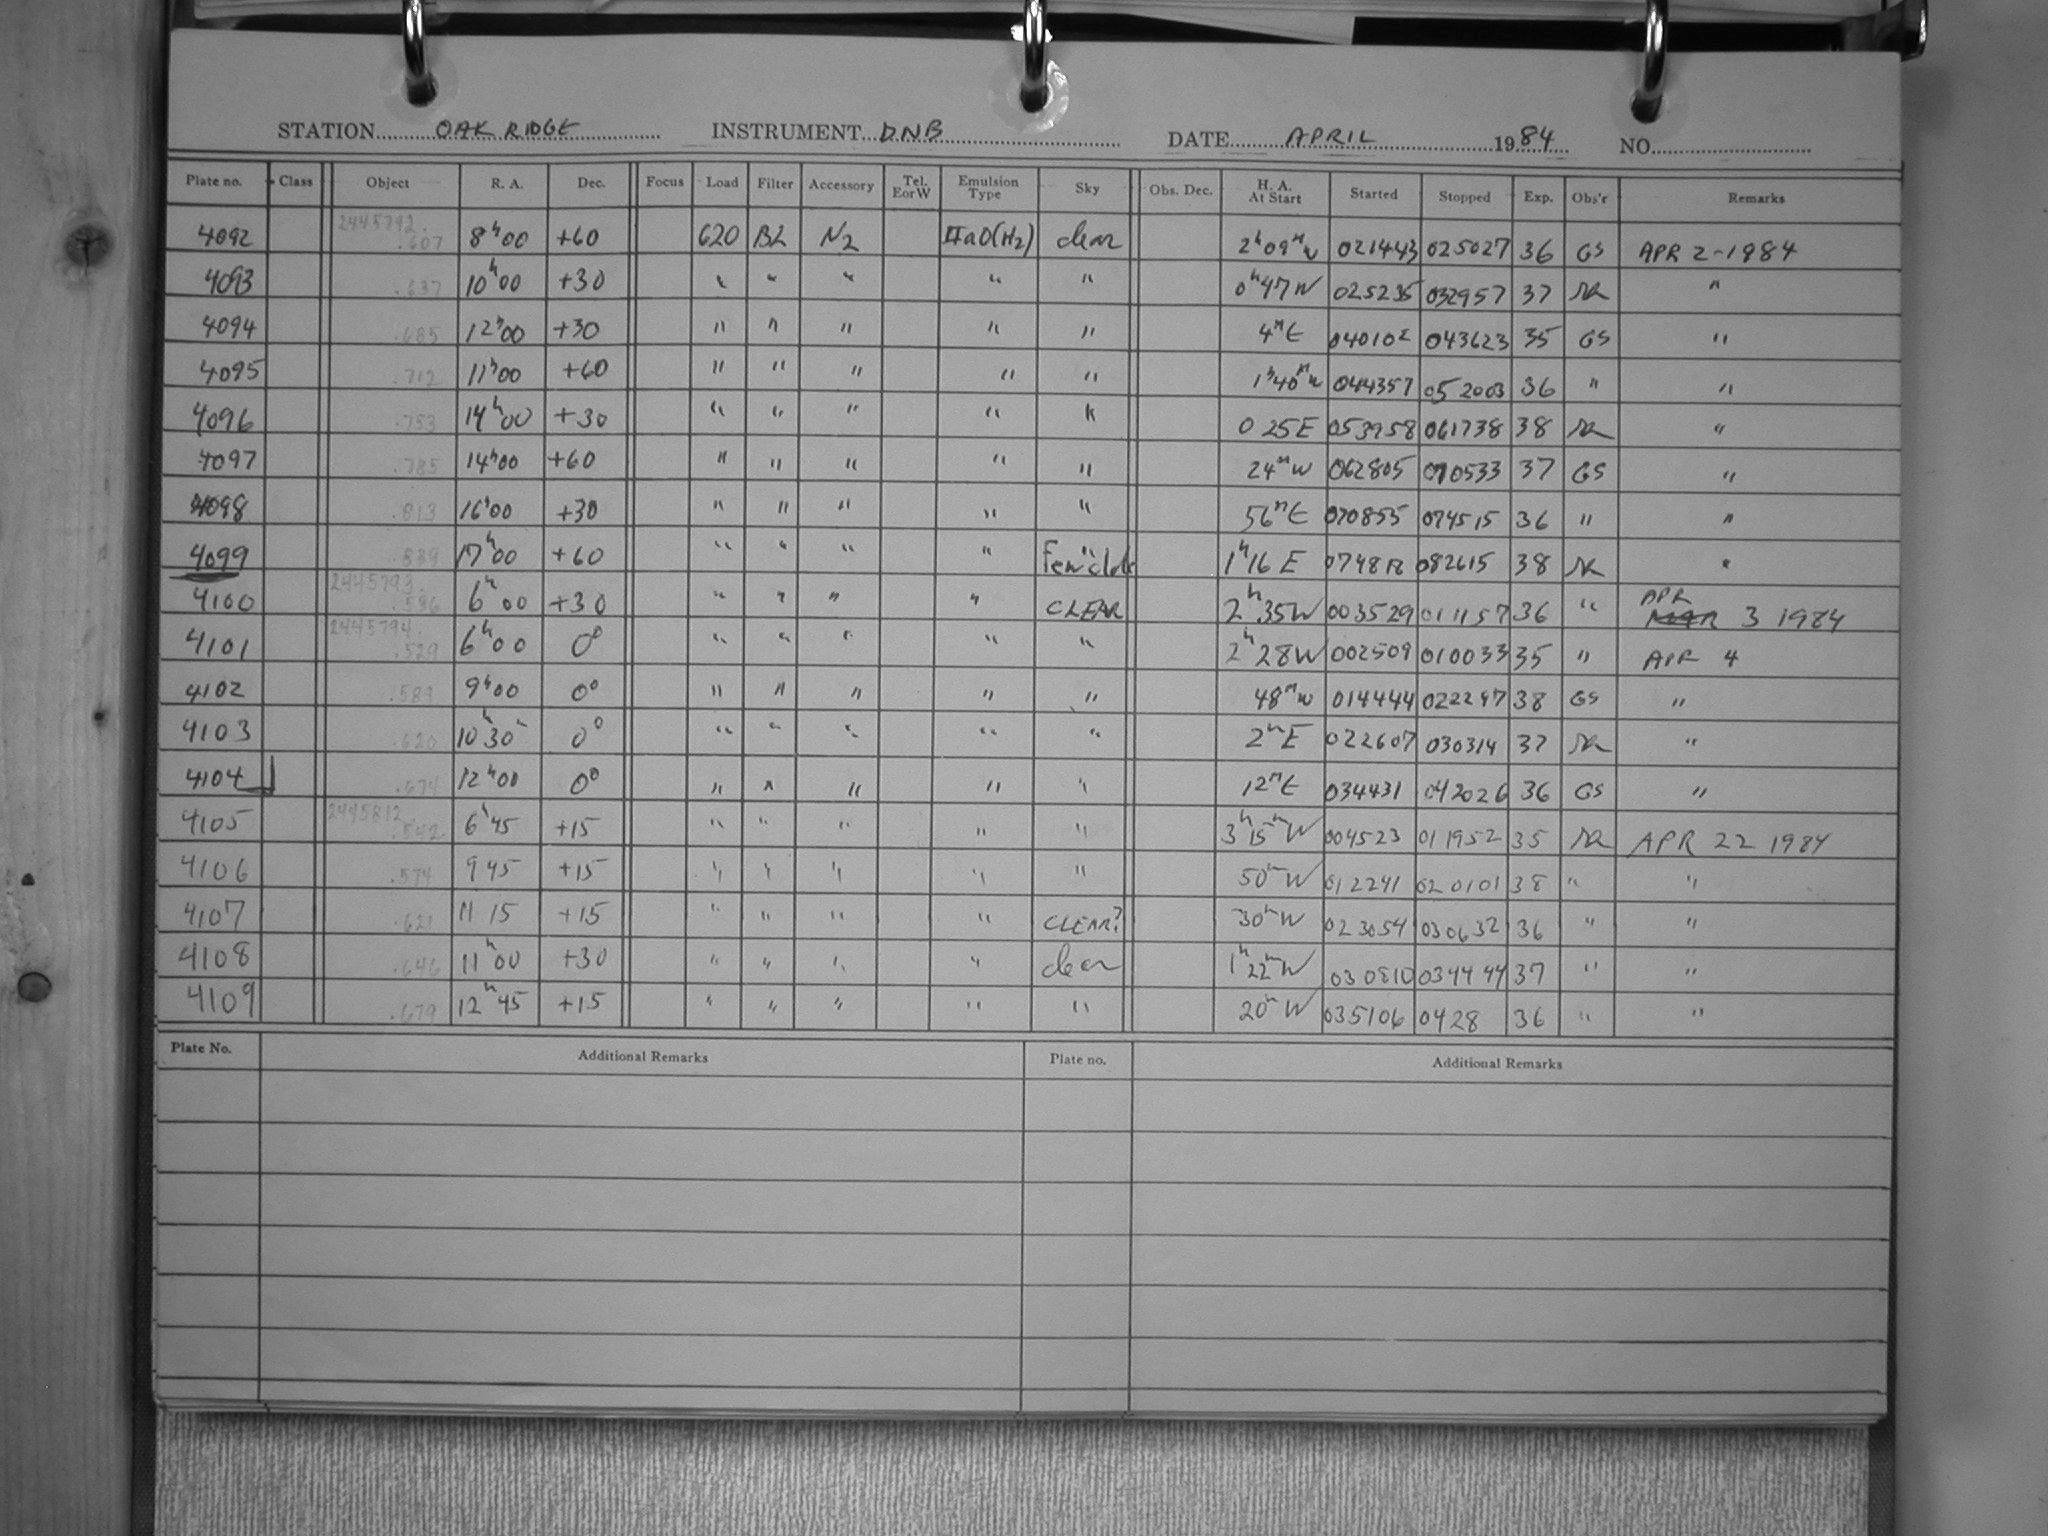 STATION OAK RIDGE INSTRUMENT DNB DATE APRIL 1984 NO.
Plate no. Class Object R. A. Dec. Focus Load Filter Accessory Tel. E or W Emulsion Type Sky Obs. Dec. H. A. At Start Started Stopped Exp. Obs'r Remarks
4092 2445792.607 8h00 +60 620 BL N2 IIaO(H2) clear 2h09m W 021443 025027 36 GS APR 2-1984
4093 .637 10h00 +30 " " " " " 0h47W 025235 032957 37 "
4094 .685 12h00 +30 " " " " " 4mE 040102 043623 35 GS "
4095 .712 11h00 +60 " " " " " 1h40m W 044357 052003 36 " "
4096 .753 14h00 +30 " " " " " 0 25E 053958 061738 38 "
4097 .785 14h00 +60 " " " " " 24m W 062805 070533 37 GS "
4098 .813 16h00 +30 " " " " " 56mE 070855 074515 36 " "
4099 .839 17h00 +60 " " " " Few clds 1h16 E 074818 082615 38 "
4100 2445793.536 6h00 +30 " " " " CLEAR 2h35W 003529 011157 36 " APR 3 1984
4101 2445794.529 6h00 0° " " " " " 2h28W 002509 010033 35 " APR 4
4102 .589 9h00 0° " " " " " 48m W 014444 022247 38 GS "
4103 .620 10h30m 0° " " " " " 2mE 022607 030314 37 "
4104 .674 12h00 0° " " " " " 12mE 034431 042026 36 GS "
4105 2445812.542 6h45 +15 " " " " " 3h15mW 004523 011952 35 APR 22 1984
4106 .574 9 45 +15 " " " " " 50mW 012241 020101 38 " "
4107 .621 11 15 +15 " " " " CLEAR? 30mW 023054 030632 36 " "
4108 .646 11h00 +30 " " " " clear 1h22mW 030810 034444 37 " "
4109 .679 12h45 +15 " " " " " 20mW 035106 0428 36 " "
Plate No. Additional Remarks Plate no. Additional Remarks